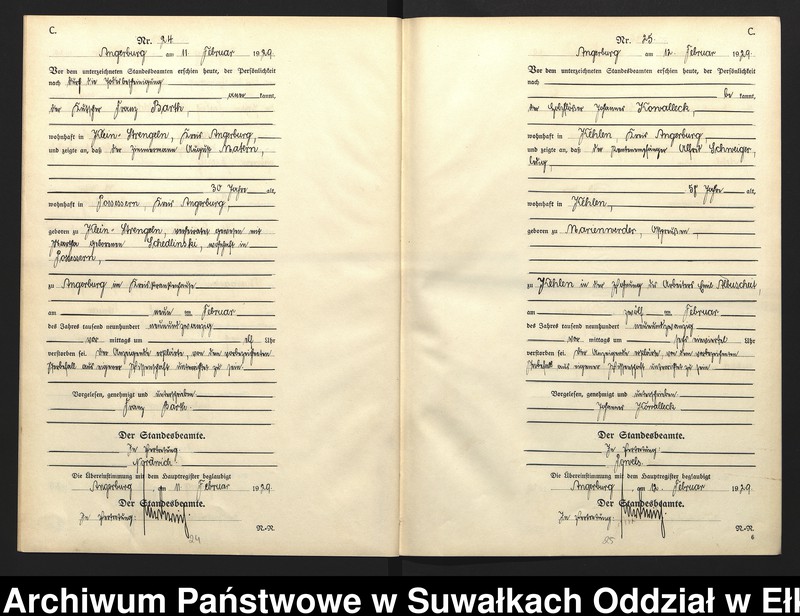 C.
Nr. 24
Angerburg am 11 Februar 1929
Vor dem unterzeichneten Standesbeamten erschien heute, der Persönlichkeit
nach durch die
aner kannt,
der Kutscher Franz Barth,
wohnhaft in Klein-Strengeln, Kreis Angerburg,
und zeigte an, daß der Zimmermann August Matern,
30 Jahre alt,
wohnhaft in Possessern, Kreis Angerburg,
geboren zu Klein-Strengeln, verheiratet gewesen mit
Martha geborenen Schedlinski, wohnhaft in
Possessern,
zu Angerburg im Kreiskrankenhause
am neun ten Februar
des Jahres tausend neunhundert neunundzwanzig
vor mittags um elf Uhr
verstorben sei. Der Anzeigende erklärte, von dem vorbezeichneten
Sterbefall aus eigener Wissenschaft unterrichtet zu sein.
Vorgelesen, genehmigt und unterschrieben
Franz Barth.
Der Standesbeamte.
In Vertretung
Die Übereinstimmung mit dem Hauptregister beglaubigt
Angerburg am 11. Februar 1929.
Der Standesbeamte.
In Vertretung:
N-N
24
C.
Nr. 25
Angerburg am 12. Februar 1929.
Vor dem unterzeichneten Standesbeamten erschien heute, der Persönlichkeit
nach
be kannt,
der Johannes Kowalleck,
wohnhaft in Kehlen, Kreis Angerburg,
und zeigte an, daß der Rentenempfänger Albert
58 Jahre alt,
wohnhaft in Kehlen,
geboren zu Marienwerder, Ostpreußen,
zu Kehlen in der Wohnung des Arbeiters Emil
am zwölf ten Februar
des Jahres tausend neunhundert neunundzwanzig
vor mittags um Uhr
verstorben sei. Der Anzeigende erklärte, von dem vorbezeichneten
Sterbefall aus eigener Wissenschaft unterrichtet zu sein
Vorgelesen, genehmigt und unterschrieben
Johannes Kowalleck
Der Standesbeamte.
In Vertretung.
Die Übereinstimmung mit dem Hauptregister beglaubigt
Angerburg am 12. Februar 1929.
Der Standesbeamte.
In Vertretung:
N-N
6
25
Archiwum Państwowe w Suwałkach Oddział w Eł